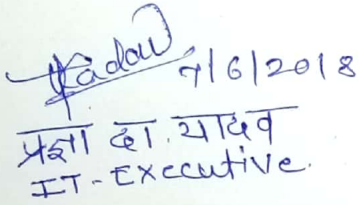 Yadav 7/6/2018
प्रज्ञा दा. यादव
IT-Executive.